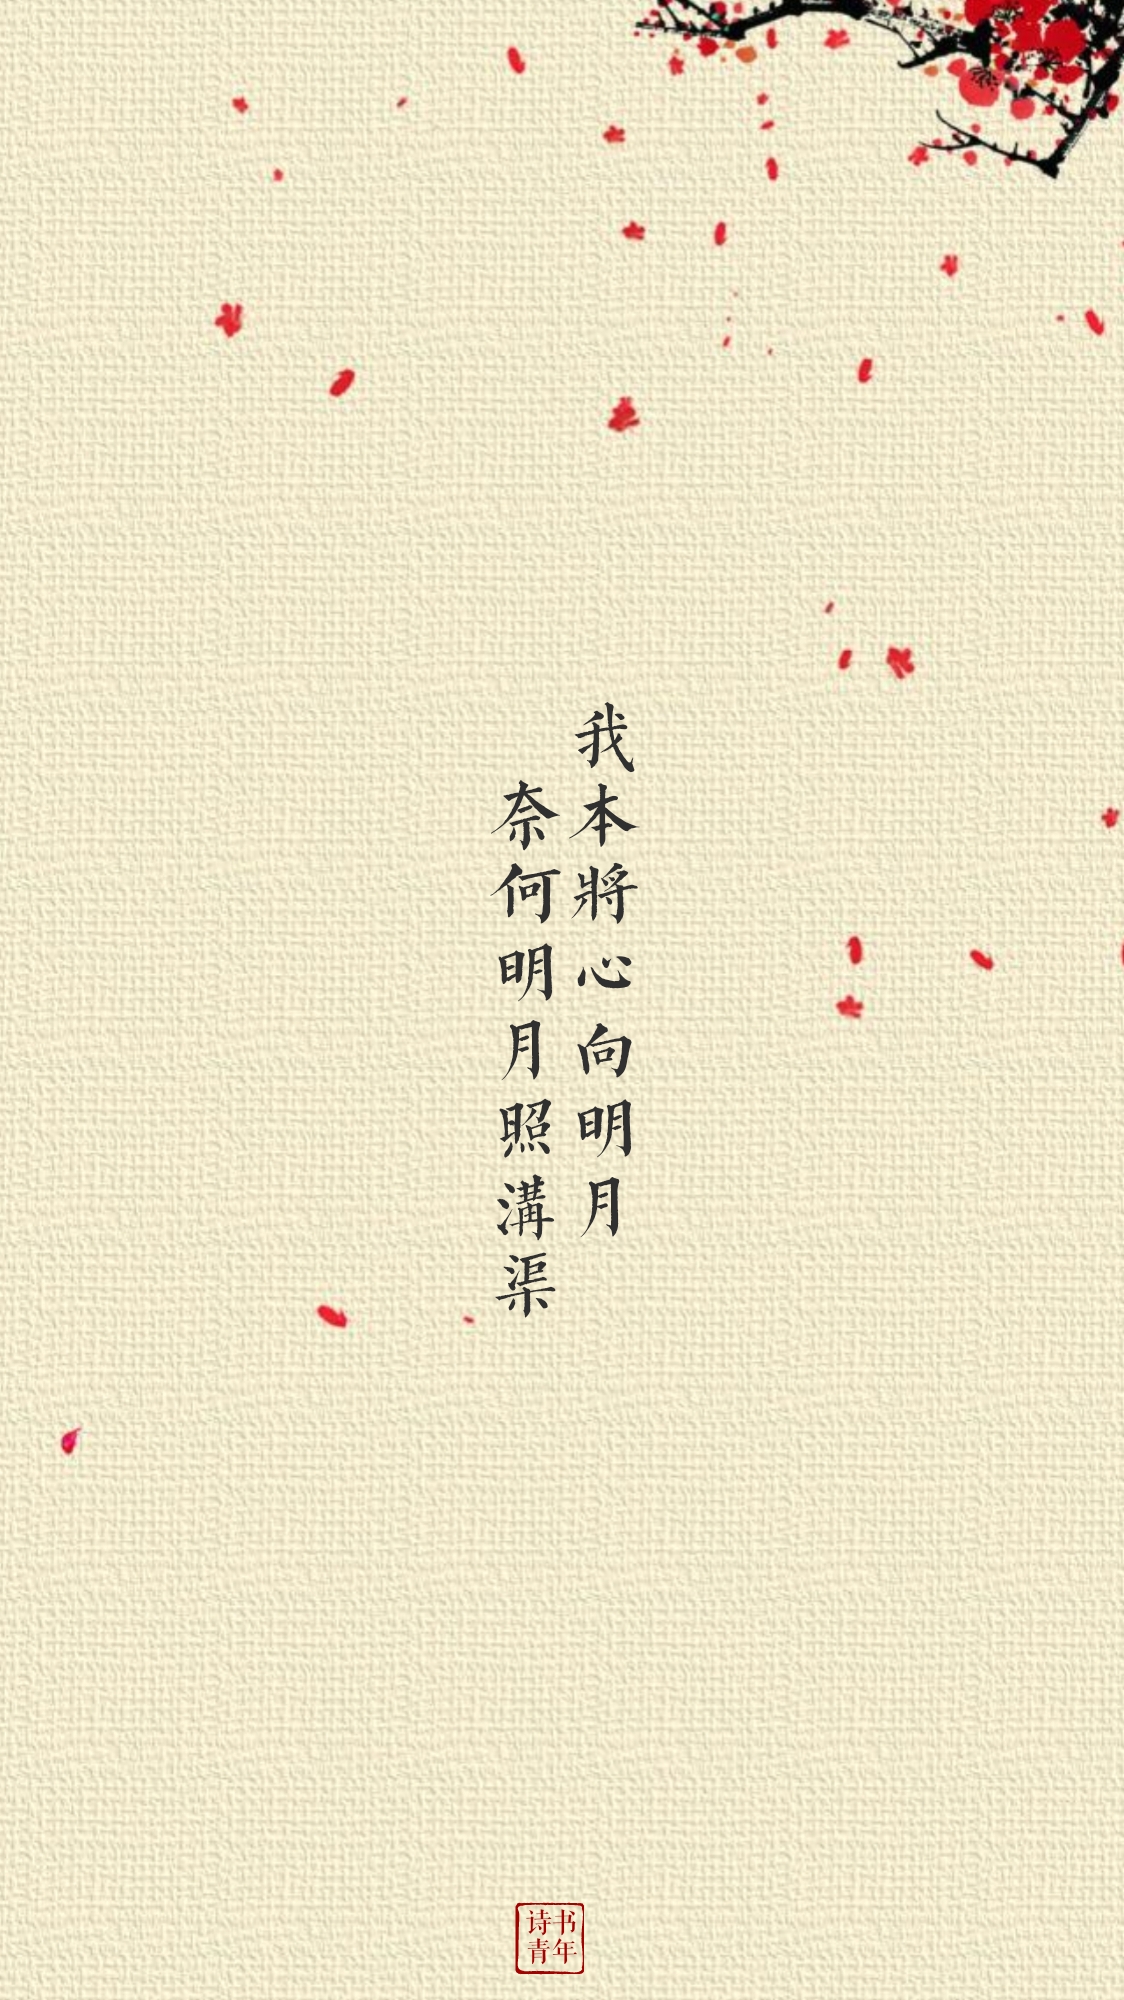 我本將心向明月
奈何明月照溝渠
诗书
青年